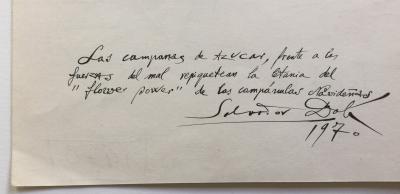 Las campanas de azucar, frente a las
fuerzas del mal repiquetean la letania del
"flower power" de las campánulas Navideñas
Salvador Dalí
1970